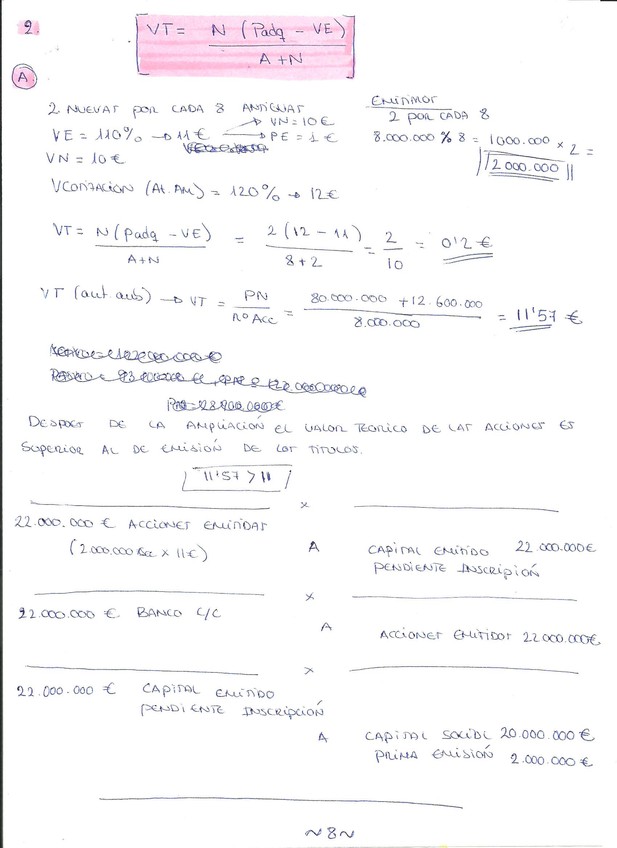 2.
VT = N (Padq - VE) / A+N
A
2 NUEVAS POR CADA 8 ANTIGUAS
VE = 110% → 11 € → VN = 10 € → PE = 1 €
VN = 10 €
EMITIMOS
2 POR CADA 8
8.000.000 % 8 = 1000.000 × 2 =
2 000.000
VCOTIZACION (At. AM) = 120% → 12 €
VT = N (Padq - VE) / A+N = 2 (12 - 11) / 8 + 2 = 2 / 10 = 0'2 €
VT (aut aub) → VT = PN / nº Acc = 80.000.000 + 12.600.000 / 8.000.000 = 11'57 €
DESPUES DE LA AMPLIACIÓN EL VALOR TEORICO DE LAS ACCIONES ES
SUPERIOR AL DE EMISIÓN DE LOS TÍTULOS.
11'57 > 11
x
22.000.000 € ACCIONES EMITIDAS
(2.000.000 acc x 11€)
A CAPITAL EMITIDO 22.000.000€
PENDIENTE INSCRIPCIÓN
x
22.000.000 € BANCO C/C
A ACCIONES EMITIDOS 22.000.000€
x
22.000.000 € CAPITAL EMITIDO
PENDIENTE INSCRIPCIÓN
A CAPITAL SOCIAL 20.000.000 €
PRIMA EMISIÓN 2.000.000 €
~8~